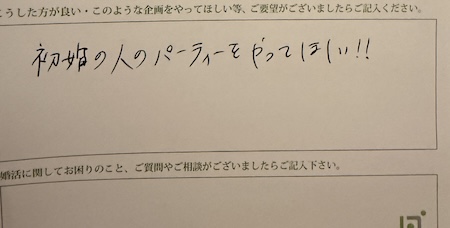 こうした方が良い・このような企画をやってほしい等、ご要望がございましたらご記入ください。
初婚の人のパーティーをやってほしい!!
婚活に関してお困りのこと、ご質問やご相談がございましたらご記入下さい。